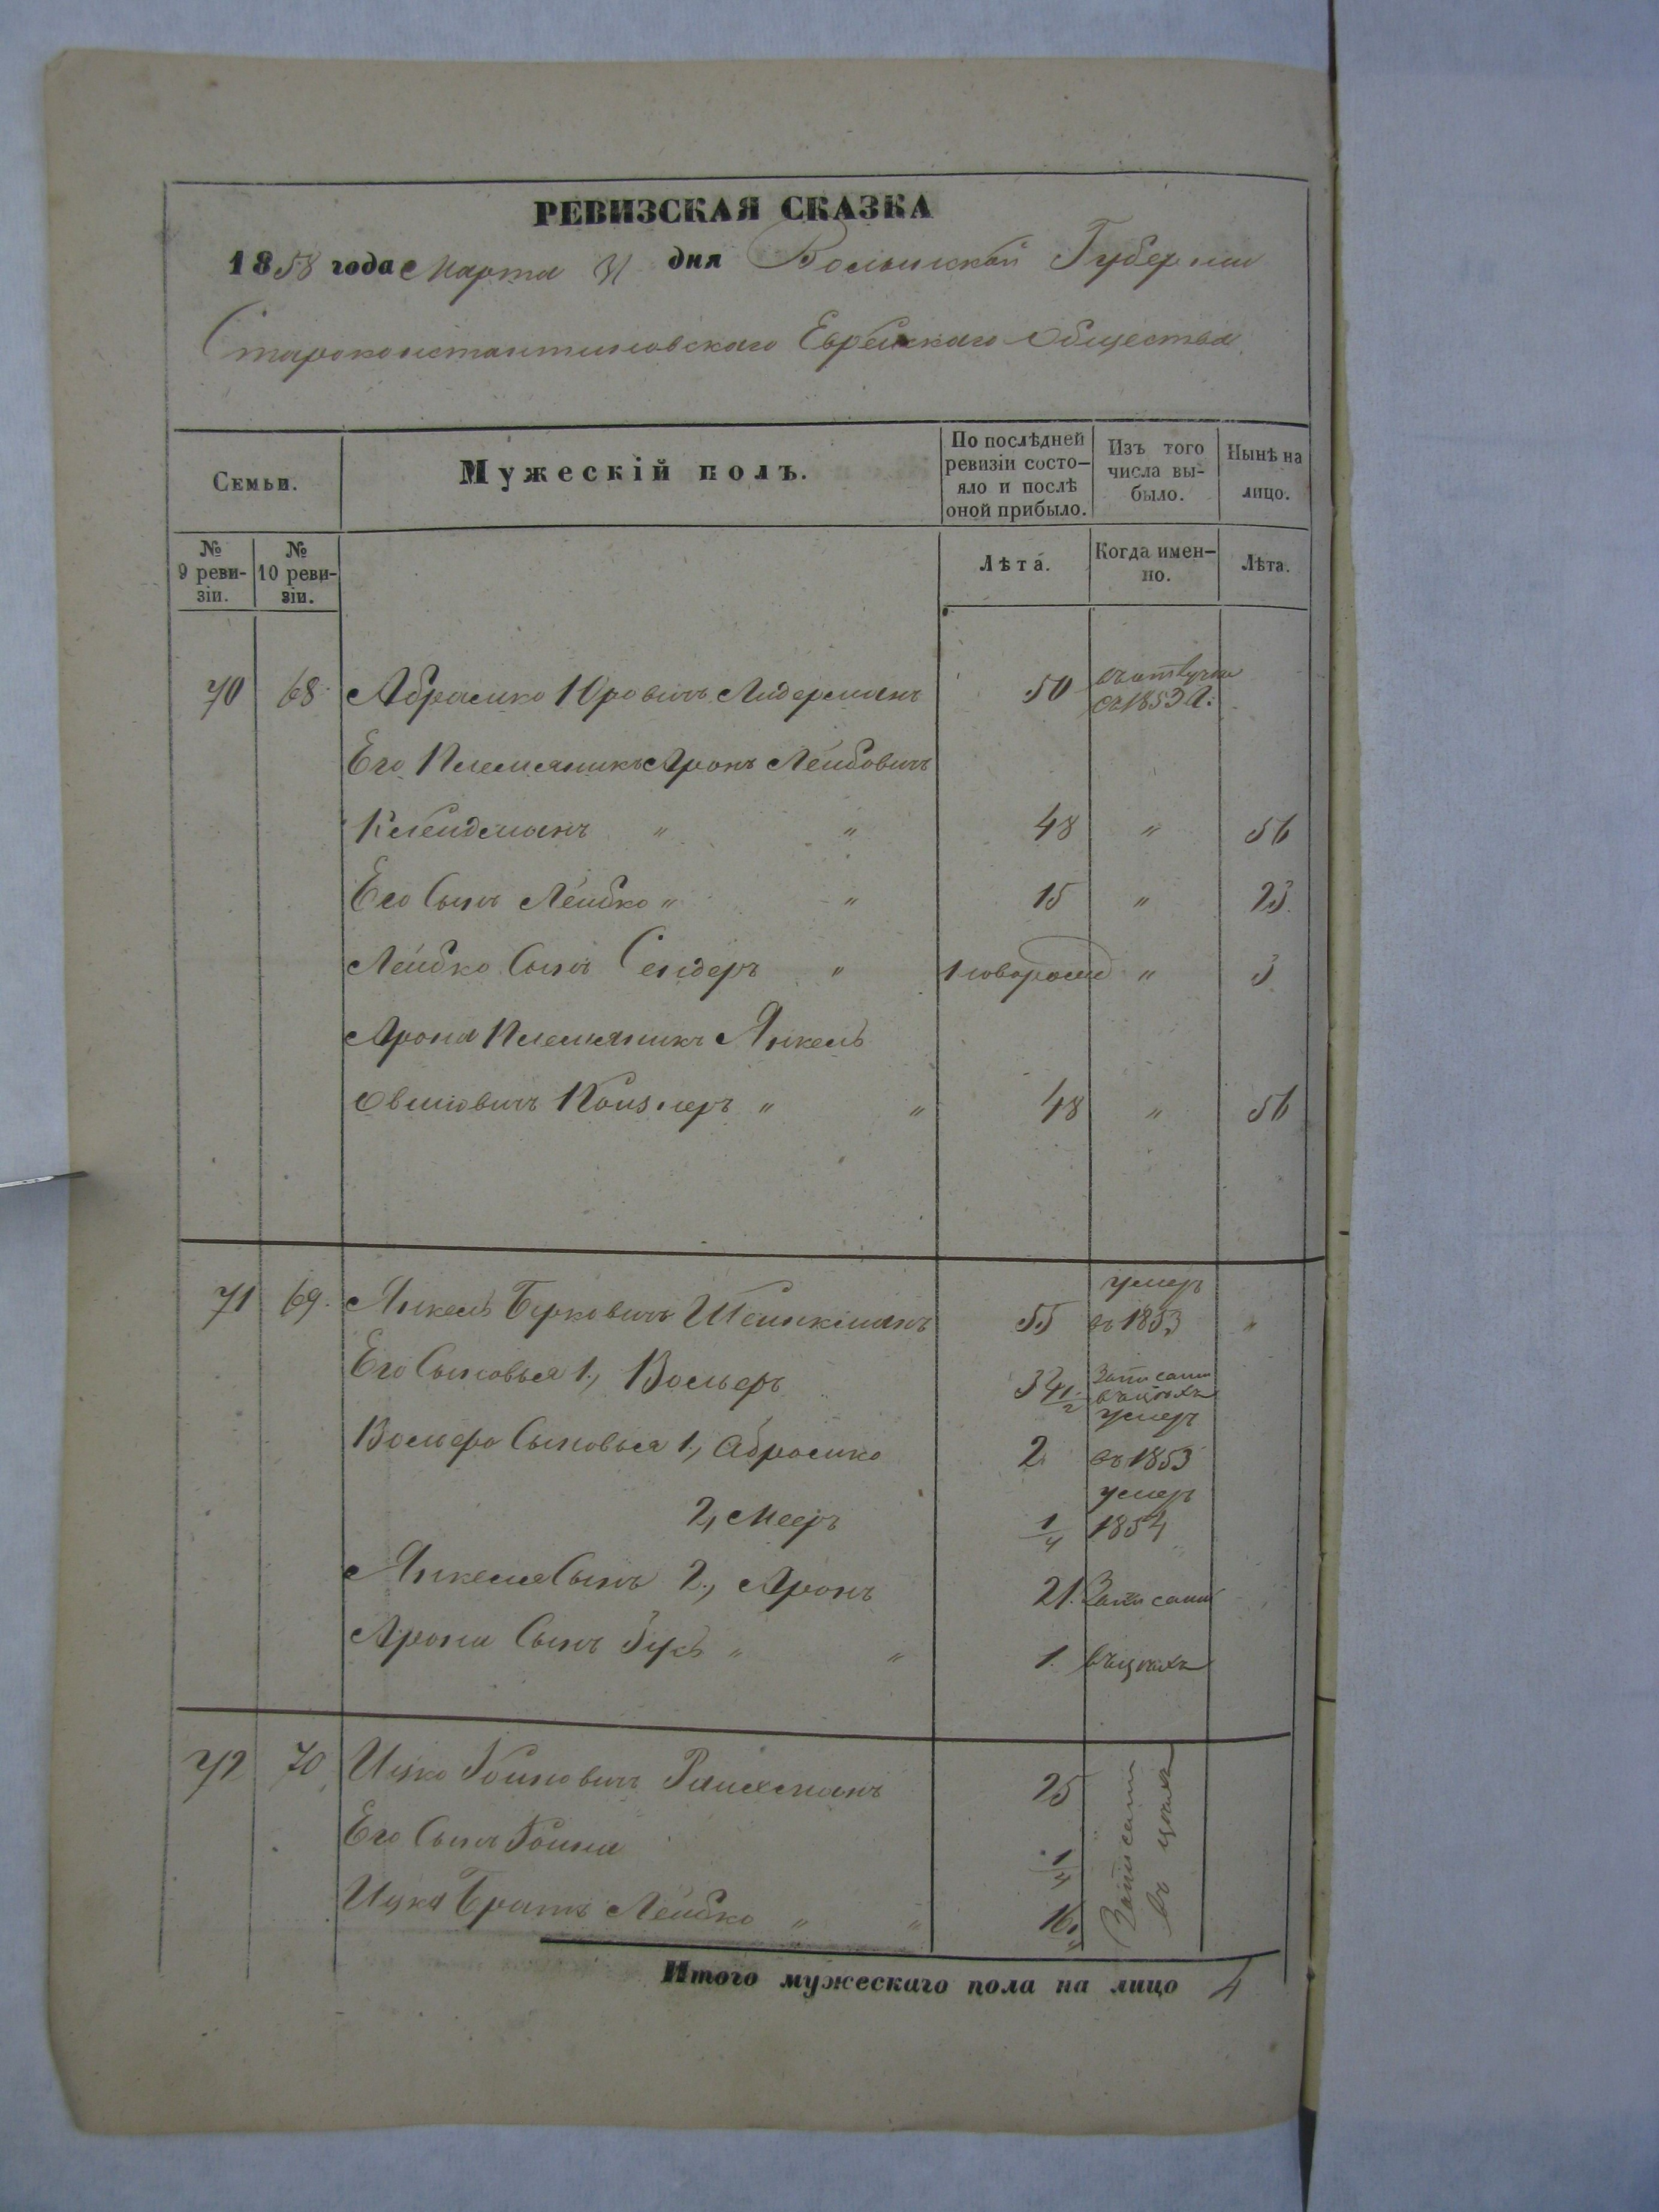 РЕВИЗСКАЯ СКАЗКА
1858 года Марта 31 дня Волынской Губернии
Староконстантиновскаго Еврейскаго Общества
Семьи.
Мужескій полъ.
По послѣдней ревизіи состояло и послѣ оной прибыло.
Изъ того числа выбыло.
Нынѣ на лицо.
№ 9 ревизіи.
№ 10 ревизіи.
Лѣта.
Когда именно.
Лѣта.
70 68 Абрамко Юровичъ Лидерманъ 50 съ 1853
Его Племяникъ Аронъ Лейбовичъ
Клейдманъ " " 48 " 56
Его Сынъ Лейбко " " 15 " 23
Лейбко Сынъ Сендеръ " новорож " 3
Арона Племяникъ Янкель
Овшіовичъ " " 48 " 56
71 69. Янкель Берковичъ Шейнкманъ 55 умеръ въ 1853 "
Его Сыновья 1., Вольфъ 34 1/2 Записаны въ цехахъ
Вольфа Сыновья 1., Абрамко 2 умеръ въ 1853
2, Мееръ 1/4 умеръ 1854
Янкеля Сынъ 2., Аронъ 21. Записаны
Арона Сынъ " " 1. въ цехахъ
72 70 Ицко Іойновичъ 25 Записаны въ цехахъ
Его Сынъ Іойна 1/4
Ицка Братъ Лейбко " " 16
Итого мужескаго пола на лицо 4